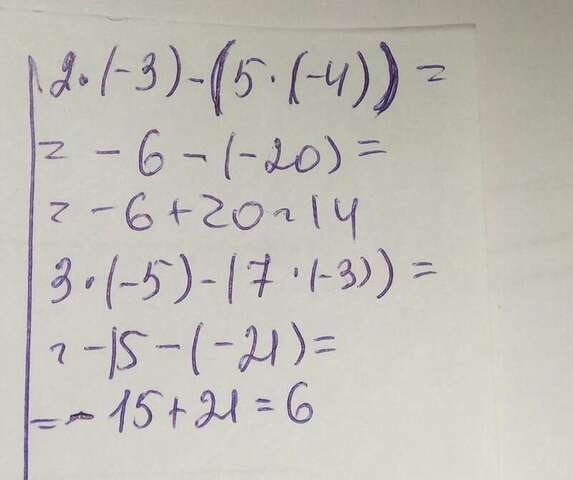 2·(-3)-(5·(-4))=
= -6-(-20)=
= -6+20=14
3·(-5)-(7·(-3))=
= -15-(-21)=
= -15+21=6